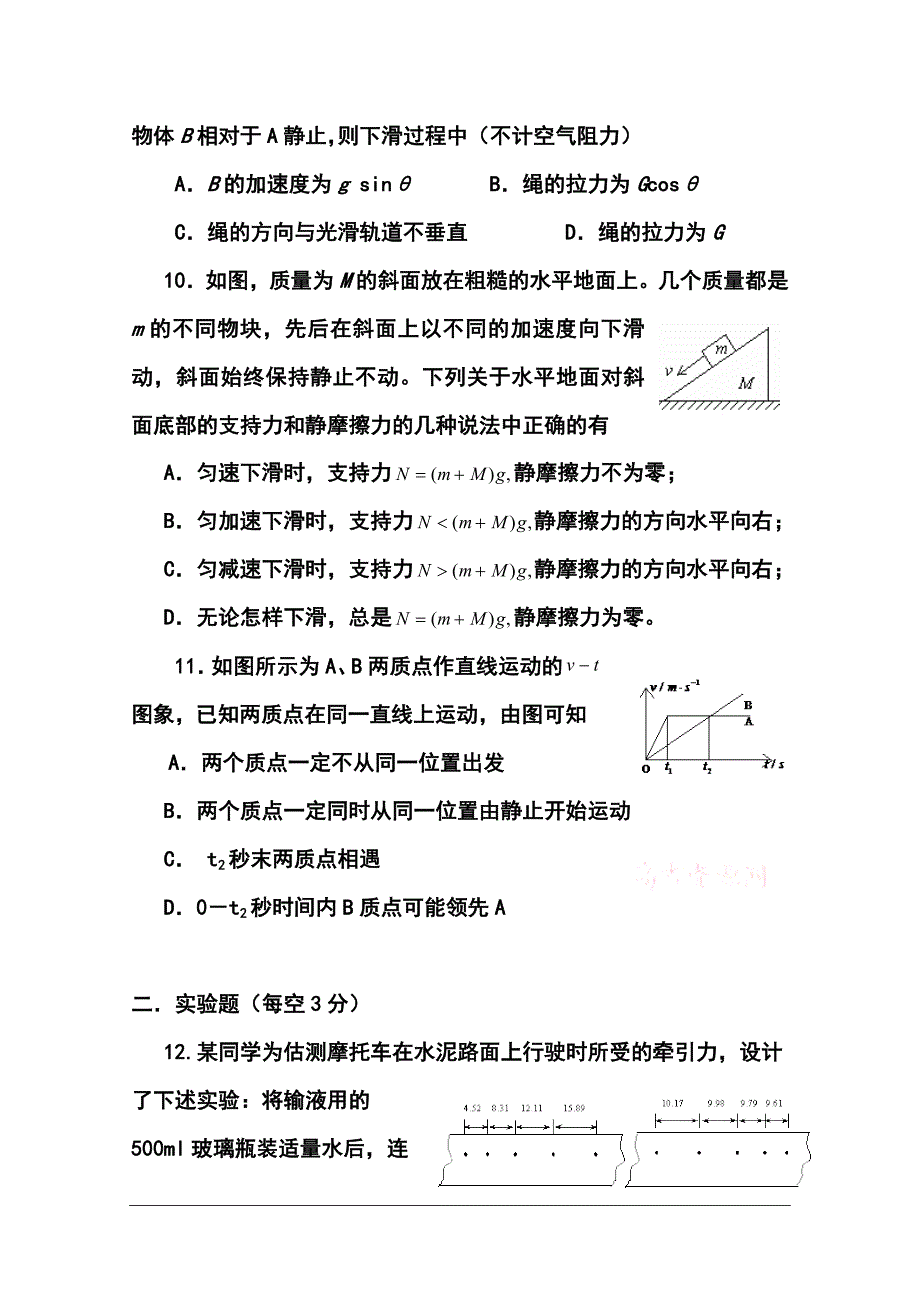 物体B相对于A静止,则下滑过程中（不计空气阻力）
A．B的加速度为g sinθ B．绳的拉力为Gcosθ
C．绳的方向与光滑轨道不垂直 D．绳的拉力为G
10．如图，质量为M的斜面放在粗糙的水平地面上。几个质量都是
m的不同物块，先后在斜面上以不同的加速度向下滑
动，斜面始终保持静止不动。下列关于水平地面对斜
面底部的支持力和静摩擦力的几种说法中正确的有
m
v
M
A．匀速下滑时，支持力N=(m+M)g,静摩擦力不为零；
B．匀加速下滑时，支持力N<(m+M)g,静摩擦力的方向水平向右；
C．匀减速下滑时，支持力N>(m+M)g,静摩擦力的方向水平向右；
D．无论怎样下滑，总是N=(m+M)g,静摩擦力为零。
11．如图所示为A、B两质点作直线运动的v−t
图象，已知两质点在同一直线上运动，由图可知
v/m·s⁻¹
B
A
O t₁ t₂ t/s
A．两个质点一定不从同一位置出发
B．两个质点一定同时从同一位置由静止开始运动
C． t₂秒末两质点相遇
D．0－t₂秒时间内B质点可能领先A
二．实验题（每空3分）
12.某同学为估测摩托车在水泥路面上行驶时所受的牵引力，设计
了下述实验：将输液用的
500ml玻璃瓶装适量水后，连
4.52 8.31 12.11 15.89
10.17 9.98 9.79 9.61